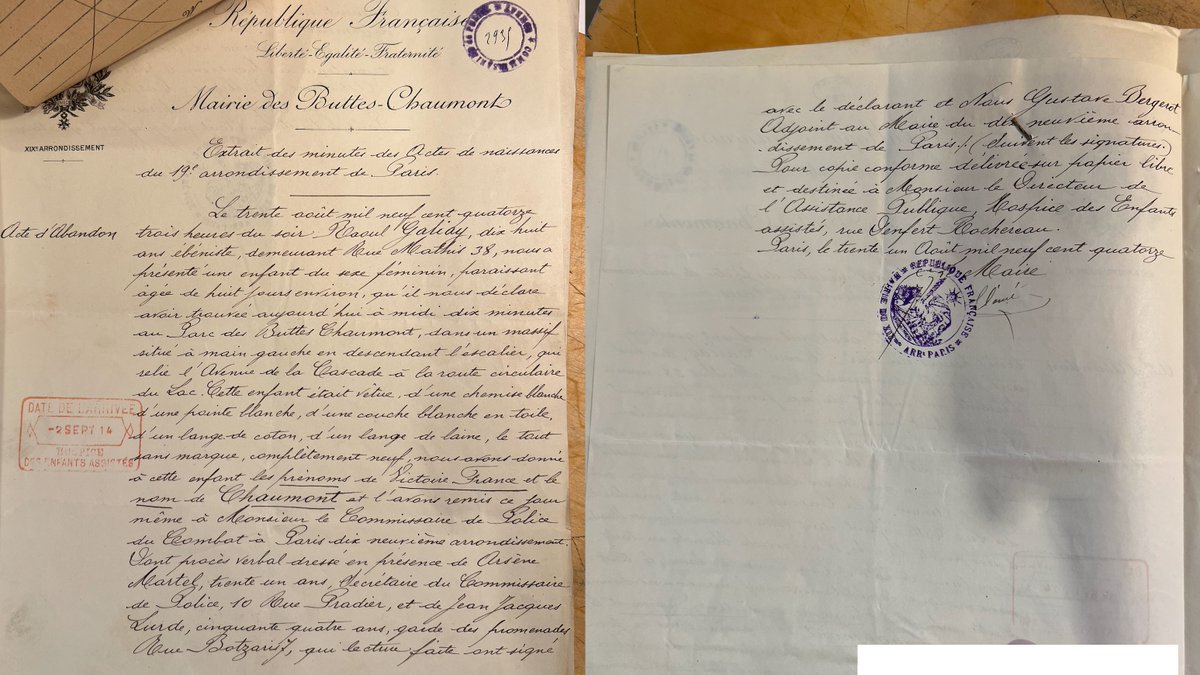 République Française
Liberté-Egalité-Fraternité
Mairie des Buttes-Chaumont
XIXe ARRONDISSEMENT
Extrait des minutes des Actes de naissances
du 19e arrondissement de Paris.
Acte d'Abandon
Le trente août mil neuf cent quatorze
trois heures du soir Raoul Galidy, dix huit
ans ébéniste, demeurant Rue Mathis 38, nous a
présenté une enfant du sexe féminin, paraissant
âgée de huit jours environ, qu'il nous déclare
avoir trouvée aujourd'hui à midi dix minutes
au Parc des Buttes Chaumont, dans un massif
situé à main gauche en descendant l'escalier, qui
relie l'Avenue de la Cascade à la route circulaire
du Lac. Cette enfant était vêtue, d'une chemise blanche
d'une pointe blanche, d'une couche blanche en toile,
d'un lange de coton, d'un lange de laine, le tout
sans marque, complètement neuf, nous avons donné
à cette enfant les prénoms de Victoire France et le
nom de Chaumont et l'avons remis ce jour
même à Monsieur le Commissaire de Police
du Combat à Paris dix neuvième arrondissement.
Dont procès verbal dressé en présence de Arsène
Martel, trente un ans, Secrétaire du Commissaire
de Police, 10 Rue Pradier, et de Jean Jacques
Lurde, cinquante quatre ans, garde des promenades
Rue Botzaris 7, qui lecture faite ont signé
DATE DE L'ARRIVÉE
-2 SEPT 14
HOSPICE
DES ENFANTS ASSISTÉS
avec le déclarant et Nous Gustave Bergerot
Adjoint au Maire du dix neuvième arron-
dissement de Paris./. (Suivent les signatures.)
Pour copie conforme délivrée sur papier libre
et destinée à Monsieur le Directeur de
l'Assistance Publique, Hospice des Enfants
assistés, rue Denfert Rochereau.
Paris, le trente un Août mil neuf cent quatorze
Maire
RÉPUBLIQUE FRANÇAISE
MAIRIE DU XIX ARRt PARIS